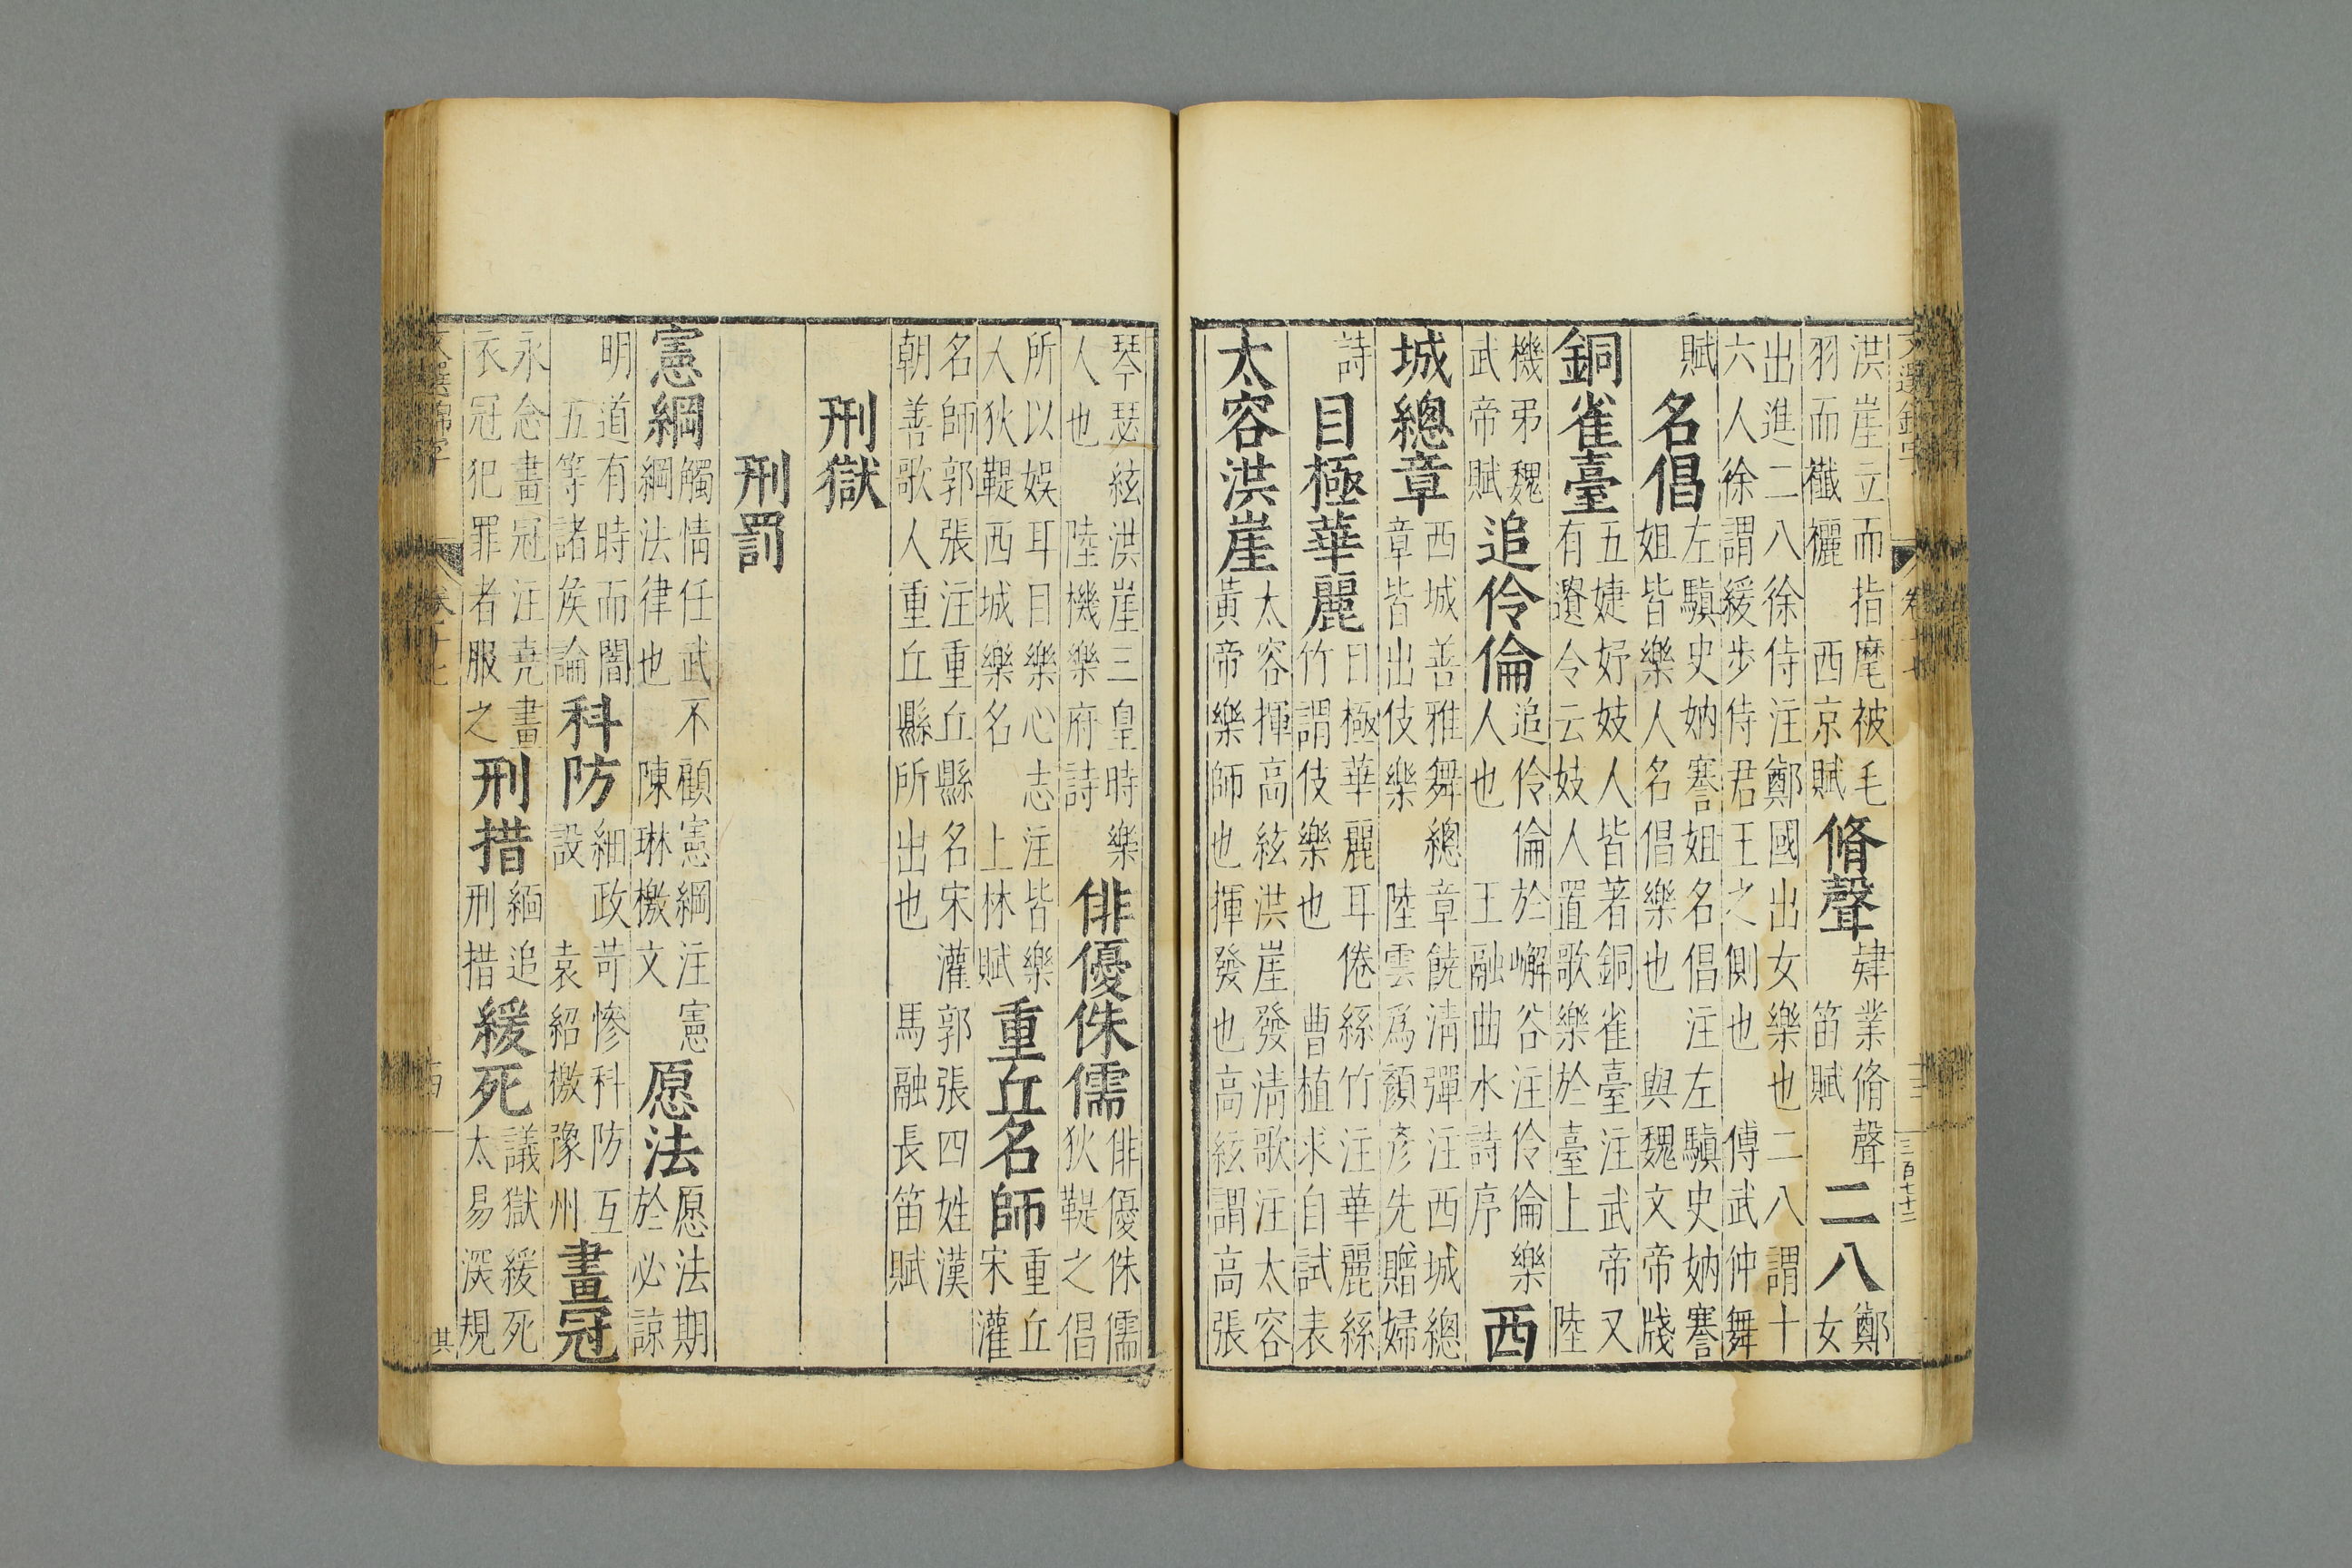 洪崖立而指麾被毛
羽而襳襹　西京賦
脩聲
肄業脩聲
笛賦
二八
鄭
女
出進二八徐侍注鄭國出女樂也二八謂十
六人徐謂緩步侍君王之側也　傅武仲舞
賦
名倡
左騏史妠謇姐名倡注左騏史妠謇
姐皆樂人名倡樂也　與魏文帝牋
銅雀臺
五婕妤妓人皆著銅雀臺注武帝又
有遺令云妓人置歌樂於臺上　陸
機弔魏
武帝賦
追伶倫
追伶倫於嶰谷注伶倫樂
人也　王融曲水詩序
西
城總章
西城善雅舞總章饒清彈注西城總
章皆出伎樂　陸雲爲顏彥先贈婦
詩
目極華麗
目極華麗耳倦絲竹注華麗絲
竹謂伎樂也　曹植求自試表
太容洪崖
太容揮高絃洪崖發清歌注太容
黃帝樂師也揮發也高絃謂高張
琴瑟絃洪崖三皇時樂
人也　陸機樂府詩
俳優侏儒
俳優侏儒
狄鞮之倡
所以娛耳目樂心志注皆樂
人狄鞮西城樂名　上林賦
重丘名師
重丘
宋灌
名師郭張注重丘縣名宋灌郭張四姓漢
朝善歌人重丘縣所出也　馬融長笛賦
刑獄
刑罰
憲綱
觸情任武不顧憲綱注憲
綱法律也　陳琳檄文
愿法
愿法期
於必諒
明道有時而闇
五等諸矦論
科防
細政苛慘科防互
設　袁紹檄豫州
畫冠
永念畫冠注堯畫
衣冠犯罪者服之
刑措
緬追
刑措
緩死
議獄緩死
太易深規
文選錦字
卷十七
三百七十二
其